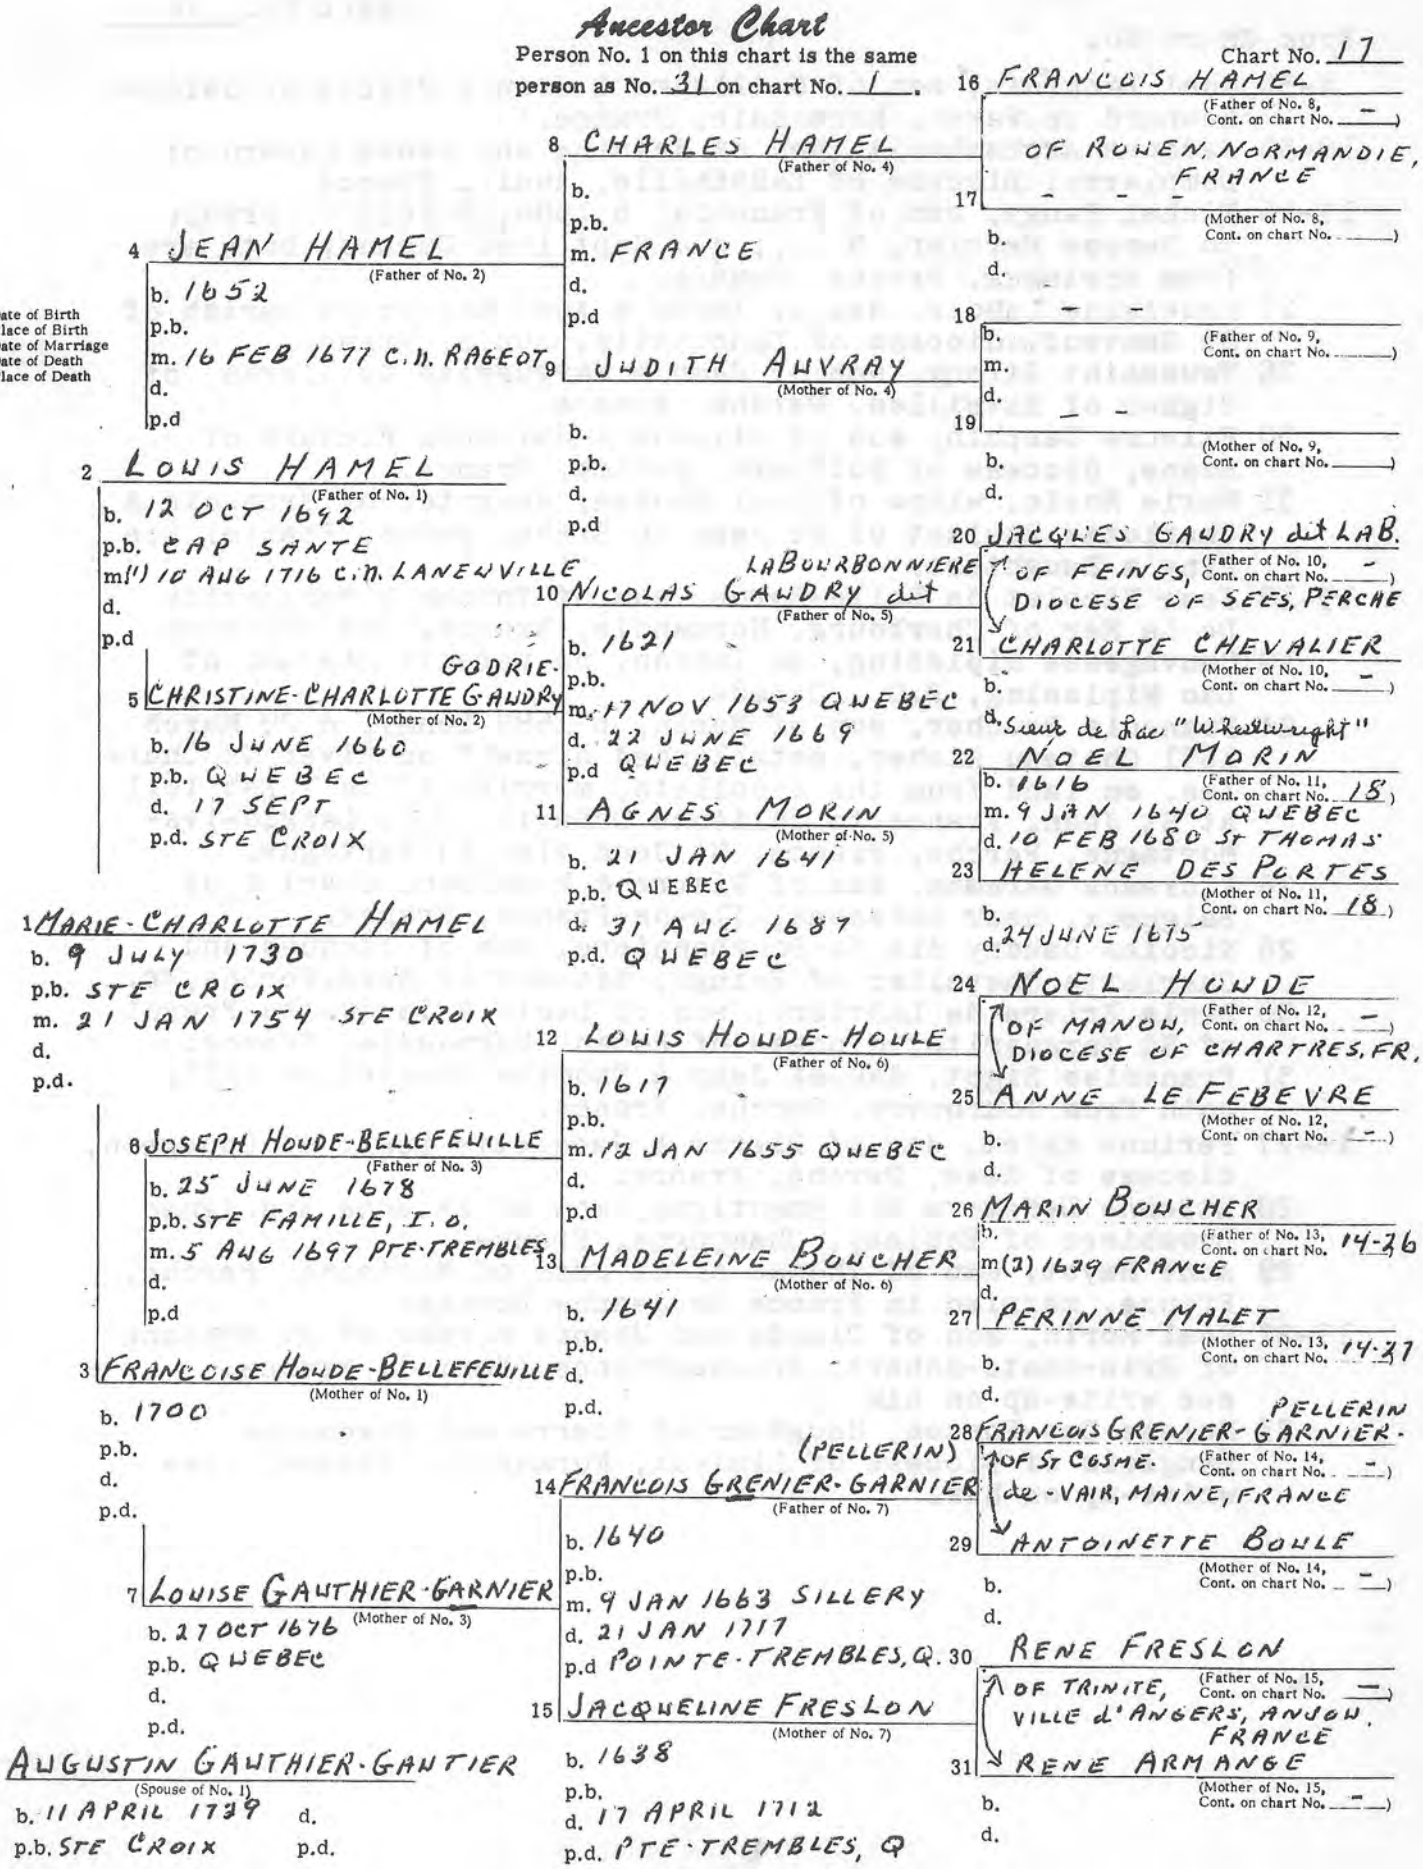 Ancestor Chart
Person No. 1 on this chart is the same
person as No. 31 on chart No. 1.
Chart No. 17
ate of Birth
lace of Birth
ate of Marriage
ate of Death
lace of Death
1 MARIE-CHARLOTTE HAMEL
b. 9 JULY 1730
p.b. STE CROIX
m. 21 JAN 1754 STE CROIX
d.
p.d.
AUGUSTIN GAUTHIER-GAUTIER
(Spouse of No. 1)
b. 11 APRIL 1729 d.
p.b. STE CROIX p.d.
2 LOUIS HAMEL
(Father of No. 1)
b. 12 OCT 1692
p.b. CAP SANTE
m(1) 10 AUG 1716 C.N. LANEUVILLE
d.
p.d
3 FRANCOISE HOUDE-BELLEFEUILLE
(Mother of No. 1)
b. 1700
p.b.
d.
p.d.
4 JEAN HAMEL
(Father of No. 2)
b. 1652
p.b.
m. 16 FEB 1677 C.N. RAGEOT
d.
p.d
GODRIE-
5 CHRISTINE-CHARLOTTE GAUDRY
(Mother of No. 2)
b. 16 JUNE 1660
p.b. QUEBEC
d. 17 SEPT
p.d. STE CROIX
6 JOSEPH HOUDE-BELLEFEUILLE
(Father of No. 3)
b. 25 JUNE 1678
p.b. STE FAMILLE, I.O.
m. 5 AUG 1697 PTE-TREMBLES
d.
p.d
7 LOUISE GAUTHIER-GARNIER
(Mother of No. 3)
b. 27 OCT 1676
p.b. QUEBEC
d.
p.d.
8 CHARLES HAMEL
(Father of No. 4)
b.
p.b.
m. FRANCE
d.
p.d
9 JUDITH AUVRAY
(Mother of No. 4)
b.
p.b.
d.
p.d
LABOURBONNIERE
10 NICOLAS GAUDRY dit
(Father of No. 5)
b. 1621
p.b.
m. 17 NOV 1653 QUEBEC
d. 22 JUNE 1669
p.d QUEBEC
11 AGNES MORIN
(Mother of No. 5)
b. 21 JAN 1641
p.b. QUEBEC
d. 31 AUG 1687
p.d. QUEBEC
12 LOUIS HOUDE-HOULE
(Father of No. 6)
b. 1617
p.b.
m. 12 JAN 1655 QUEBEC
d.
p.d
13 MADELEINE BOUCHER
(Mother of No. 6)
b. 1641
p.b.
d.
p.d.
(PELLERIN)
14 FRANCOIS GRENIER-GARNIER
(Father of No. 7)
b. 1640
p.b.
m. 9 JAN 1663 SILLERY
d. 21 JAN 1717
p.d POINTE-TREMBLES, Q.
15 JACQUELINE FRESLON
(Mother of No. 7)
b. 1638
p.b.
d. 17 APRIL 1712
p.d. PTE-TREMBLES, Q
16 FRANCOIS HAMEL
(Father of No. 8,
Cont. on chart No. - )
OF ROUEN, NORMANDIE,
FRANCE
17 - - -
(Mother of No. 8,
Cont. on chart No. )
b.
d.
18 - - -
b. (Father of No. 9,
Cont. on chart No. )
m.
d.
19 - -
(Mother of No. 9,
b. Cont. on chart No. )
d.
20 JACQUES GAUDRY dit LAB.
OF FEINGS, (Father of No. 10,
Cont. on chart No. - )
DIOCESE OF SEES, PERCHE
21 CHARLOTTE CHEVALIER
(Mother of No. 10,
b. Cont. on chart No. - )
d. Sieur de Luc "Wheelwright"
22 NOEL MORIN
b. 1616 (Father of No. 11,
Cont. on chart No. 18)
m. 9 JAN 1640 QUEBEC
d. 10 FEB 1680 ST THOMAS
23 HELENE DES PORTES
(Mother of No. 11,
b. Cont. on chart No. 18)
d. 24 JUNE 1675
24 NOEL HOUDE
OF MANOU, (Father of No. 12,
Cont. on chart No. - )
DIOCESE OF CHARTRES, FR.
25 ANNE LE FEBEVRE
(Mother of No. 12,
b. Cont. on chart No. - )
d.
26 MARIN BOUCHER
b. (Father of No. 13, 14-26
Cont. on chart No. )
m(2) 1629 FRANCE
d.
27 PERINNE MALET
(Mother of No. 13, 14-27
b. Cont. on chart No. )
d.
PELLERIN
28 FRANCOIS GRENIER-GARNIER-
OF ST COSME- (Father of No. 14,
Cont. on chart No. - )
de-VAIR, MAINE, FRANCE
29 ANTOINETTE BOULE
(Mother of No. 14,
b. Cont. on chart No. - )
d.
30 RENE FRESLON
OF TRINITE, (Father of No. 15,
Cont. on chart No. - )
VILLE d'ANGERS, ANJOU,
FRANCE
31 RENE ARMANGE
(Mother of No. 15,
b. Cont. on chart No. - )
d.